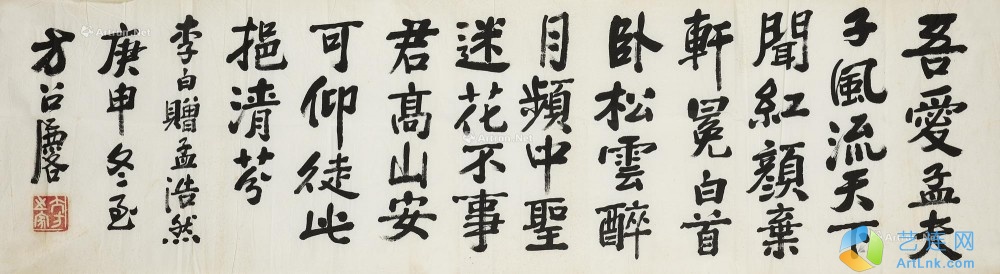 吾愛孟夫
子風流天下
聞紅顏棄
軒冕白首
卧松雲醉
月頻中聖
迷花不事
君高山安
可仰徒此
挹清芬
李白贈孟浩然
庚申冬至
方召麐
艺连网
ArtLnk.com